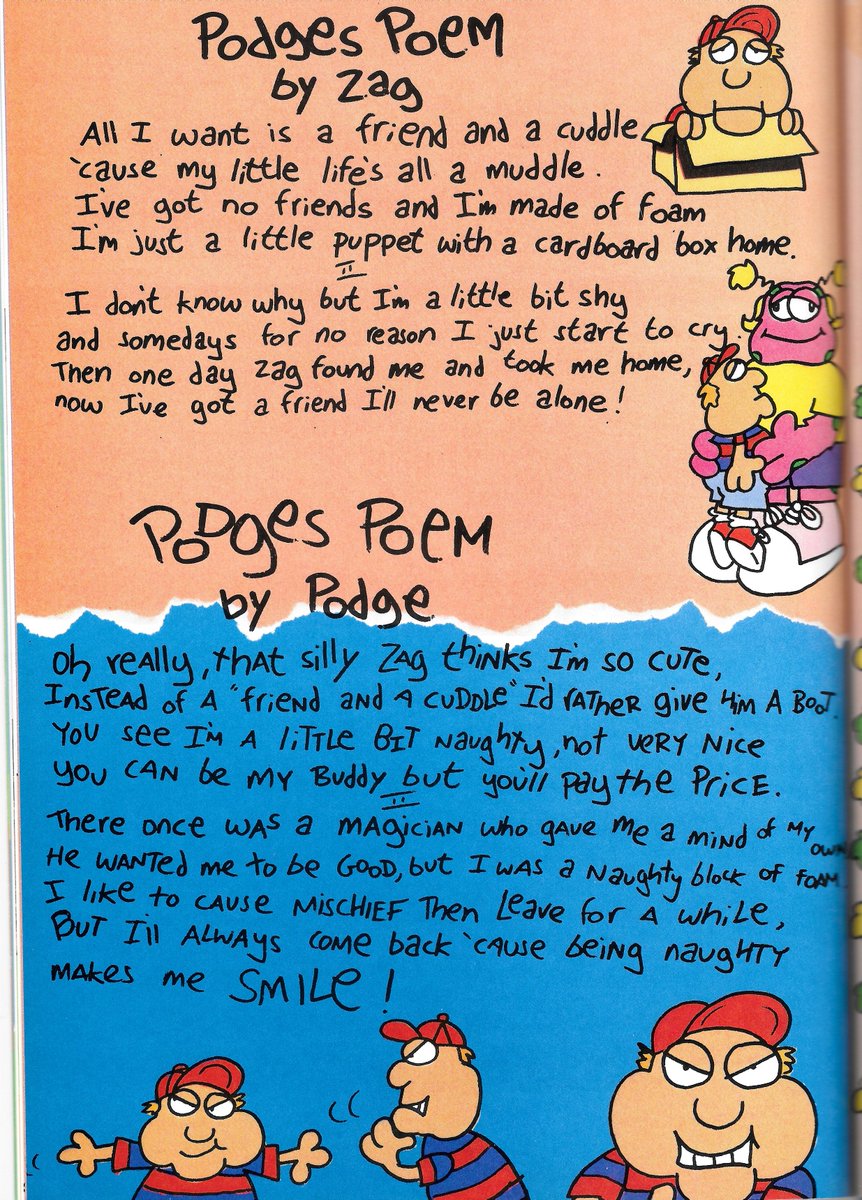 Podges Poem
by Zag
All I want is a friend and a cuddle
'cause my little life's all a muddle.
I've got no friends and I'm made of foam
I'm just a little puppet with a cardboard box home.
I don't know why but I'm a little bit shy
and somedays for no reason I just start to cry
Then one day Zag found me and took me home,
now I've got a friend I'll never be alone!
PODges POEM
by Podge
Oh really, that silly Zag thinks I'm so cute,
Instead of a "friend and a cuddle" I'd rather give him a boot.
You see I'm a little bit naughty, not very nice
you can be my buddy but you'll pay the price.
There once was a magician who gave me a mind of my own
He wanted me to be good, but I was a naughty block of foam
I like to cause mischief then leave for a while,
But I'll always come back 'cause being naughty
makes me SMILE!